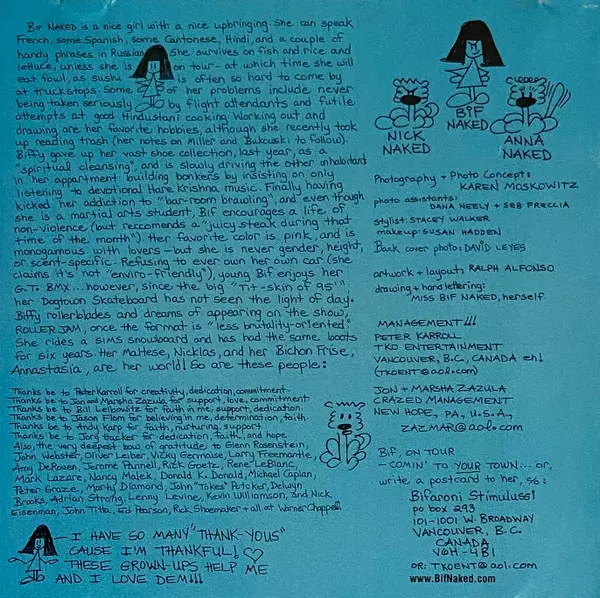 BIF NAKED is a nice girl with a nice upbringing. She can speak
French, some Spanish, some Cantonese, Hindi, and a couple of
handy phrases in Russian. She survives on fish and rice and
lettuce, unless she is on tour - at which time she will
eat fowl, as sushi is often so hard to come by
at truckstops. Some of her problems include never
being taken seriously by flight attendants and futile
attempts at good Hindustani cooking. Working out and
drawing are her favorite hobbies, although she recently took
up reading trash (her notes on Miller and Bukouski to follow).
Biffy gave up her vast shoe collection, last year, as a
"spiritual cleansing", and is slowly driving the other inhabitant
in her appartment building bonkers by insisting on only
listening to devotional Hare Krishna music. Finally having
kicked her addiction to "bar-room brawling", and even though
she is a martial arts student, Bif encourages a life of
non-violence (but reccomends a "juicy steak during that
time of the month") Her favorite color is pink, and is
monogamous with lovers - but she is never gender, height,
or scent-specific. Refusing to ever own her own car (she
claims it's not "enviro-friendly"), young Bif enjoys her
G.T. BMX... however, since the big "Tit-skin of 95'"
her Dogtown Skateboard has not seen the light of day.
Biffy rollerblades and dreams of appearing on the show,
ROLLERJAM, once the format is "less brutality-oriented".
She rides a SIMS snowboard and has had the same boots
for six years. Her Maltese, Nicklas, and her Bichon Frise,
Annastasia, are her world! So are these people:
Thanks be to Peter Karroll for creativity, dedication, commitment
Thanks be to Jon and Marsha Zazula for support, love, commitment
Thanks be to Bill Leibowitz for faith in me, support, dedication
Thanks be to Jason Flom for believing in me, determination, faith
Thanks be to Andy Karp for faith, nurturing, support
Thanks be to Jory thacker for dedication, faith, and hope
Also, the very deepest bow of gratitude, to Glenn Rosenstein,
John Webster, Oliver Leiber, Vizky Germaise, Larry Freemantle,
Amy DeRouen, Jerome Pannell, Rick Goetz, René LeBlanc,
Mark Lazare, Nancy Malek, Donald K. Donald, Michael Caplan,
Peter Graze, Marty Diamond, John "Jokes" Potcker, Delwyn
Brooks, Adrian Strong, Lenny Levine, Kevin Williamson, and Nick
Eisenman, John Titta, Ed Pearson, Rick Shoemaker + all at Warner Chappell
- I HAVE SO MANY "THANK-YOUS"
CAUSE I'M THANKFUL!
THESE GROWN-UPS HELP ME
AND I LOVE DEM!!!
NICK
NAKED
BIF
NAKED
ANNA
NAKED
Photography + Photo Concept:
KAREN MOSKOWITZ
photo assistants:
DANA NEELY + SEB FRECCIA
stylist: STACEY WALKER
makeup: SUSAN HADDEN
Back cover photo: DAVID LEYES
artwork + layout: RALPH ALFONSO
drawing + hand lettering:
MISS BIF NAKED, herself.
MANAGEMENT!!!
PETER KARROLL
TKO ENTERTAINMENT
VANCOUVER, B.C., CANADA eh!
(TKOENT@aol.com)
JON + MARSHA ZAZULA
CRAZED MANAGEMENT
NEW HOPE, PA, U.S.A.,
ZAZMAR@aol.com
BIF, ON TOUR
- COMIN' TO YOUR TOWN... or,
write a postcard to her, %:
Bifaroni Stimulussi
po box 293
101-1001 W. BROADWAY
VANCOUVER, B.C.
CANADA
V6H-4B1
OR: TKOENT@aol.com
www.BifNaked.com